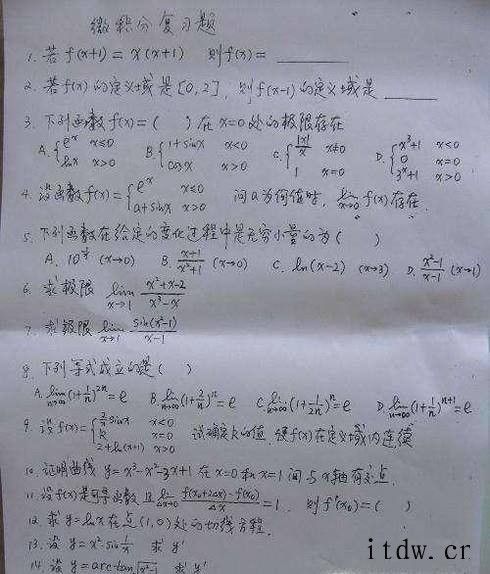 微积分复习题
1. 若f(x+1) = x(x+1) 则f(x) = ______
2. 若f(x)的定义域是[0,2], 则f(x-1)的定义域是 ______
3. 下列函数f(x)=( )在x=0处的极限存在
A. { e^x x≤0 ; lnx x>0 B. { 1+sinx x<0 ; cosx x>0 C. { |x|/x x≠0 ; 1 x=0 D. { x³+1 x<0 ; 0 x=0 ; 3^x+1 x>0
4. 设函数f(x)= { e^x x≤0 ; a+sinx x>0 问a为何值时, lim x→0 f(x)存在.
5. 下列函数在给定的变化过程中是无穷小量的为( )
A. (x→0) B. (x+1)/(x²+1) (x→0) C. ln(x-2) (x→3) D. (x²-1)/(x-1) (x→1)
6. 求极限 lim x→1 (x²+x-2)/(x³-x)
7. 求极限 lim x→1 sin(x²-1)/(x-1)
8. 下列等式成立的是( )
A. lim n→∞ (1+1/n)^2n = e B. lim n→∞ (1+2/n)^n = e C. lim n→∞ (1+1/2n)^n = e D. lim n→∞ (1+1/n)^n+1 = e
9. 设f(x)= { 2/x sinx x<0 ; k x=0 ; 2+ln(x+1) x>0 试确定k的值 使f(x)在定义域内连续
10. 证明曲线 y=x³-x²-3x+1 在x=0和x=1间与x轴有交点.
11. 设f(x)是可导函数且 lim Δx→0 (f(x₀+2Δx)-f(x₀))/Δx = 1. 则f'(x₀)=( )
12. 求y=lnx在点(1,0)处的切线方程.
13. 设y=x²·sin 1/x 求y'
14. 设y=arctan√(x²-1) 求y'
itdw.cr